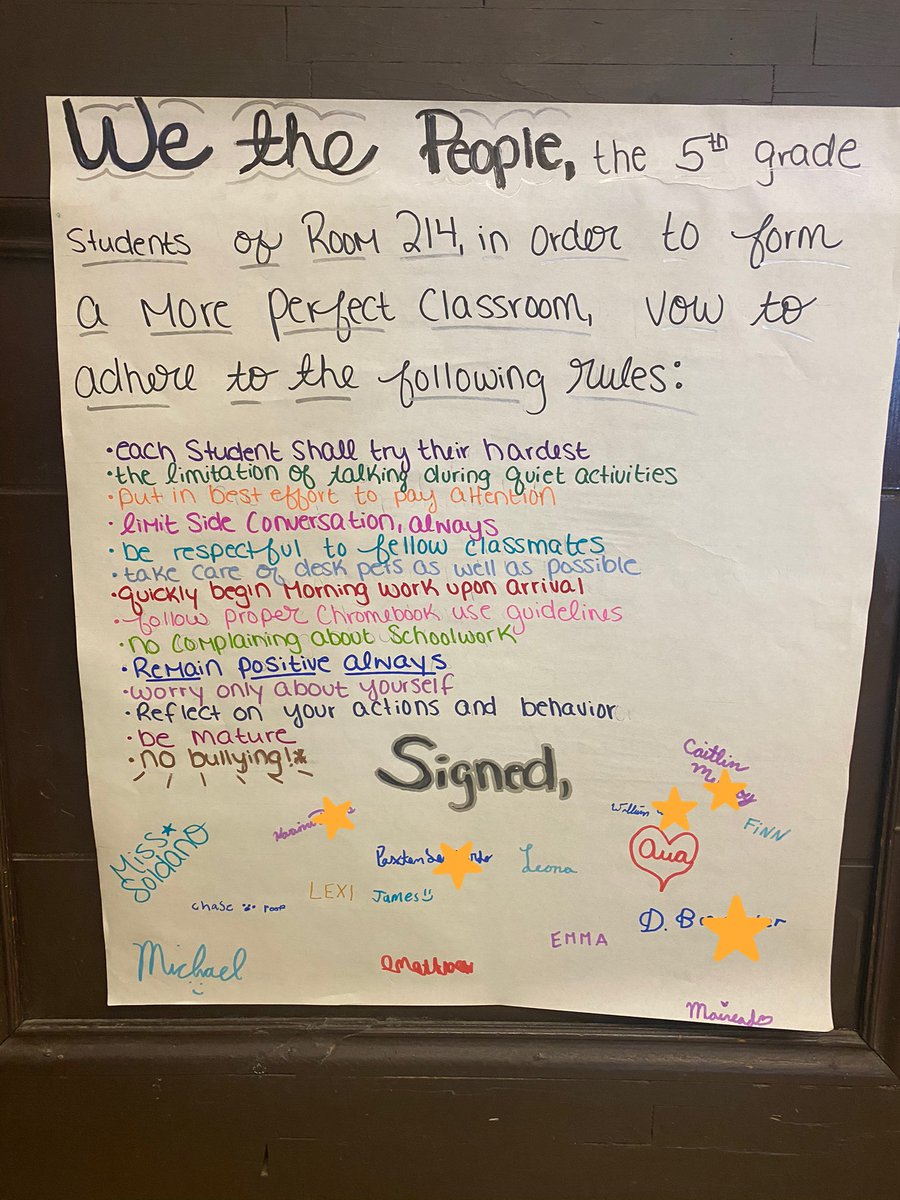 We the People, the 5th grade
Students of Room 214, in order to form
a more perfect Classroom, vow to
adhere to the following rules:
•each Student Shall try their hardest
•the limitation of talking during quiet activities
•put in best effort to pay attention
•limit Side Conversation, always
•be respectful to fellow classmates
•take care of desk pets as well as possible
•quickly begin Morning work upon arrival
•follow proper Chromebook use guidelines
•no complaining about Schoolwork
•Remain positive always
•worry only about yourself
•Reflect on your actions and behavior
•be mature
•no bullying!*
Signed,
Caitlin
William
FiNN
Miss
Soldano
Leona
ava
LEXI
James
chase
D.
EMMA
Michael
Matthew
Mairead